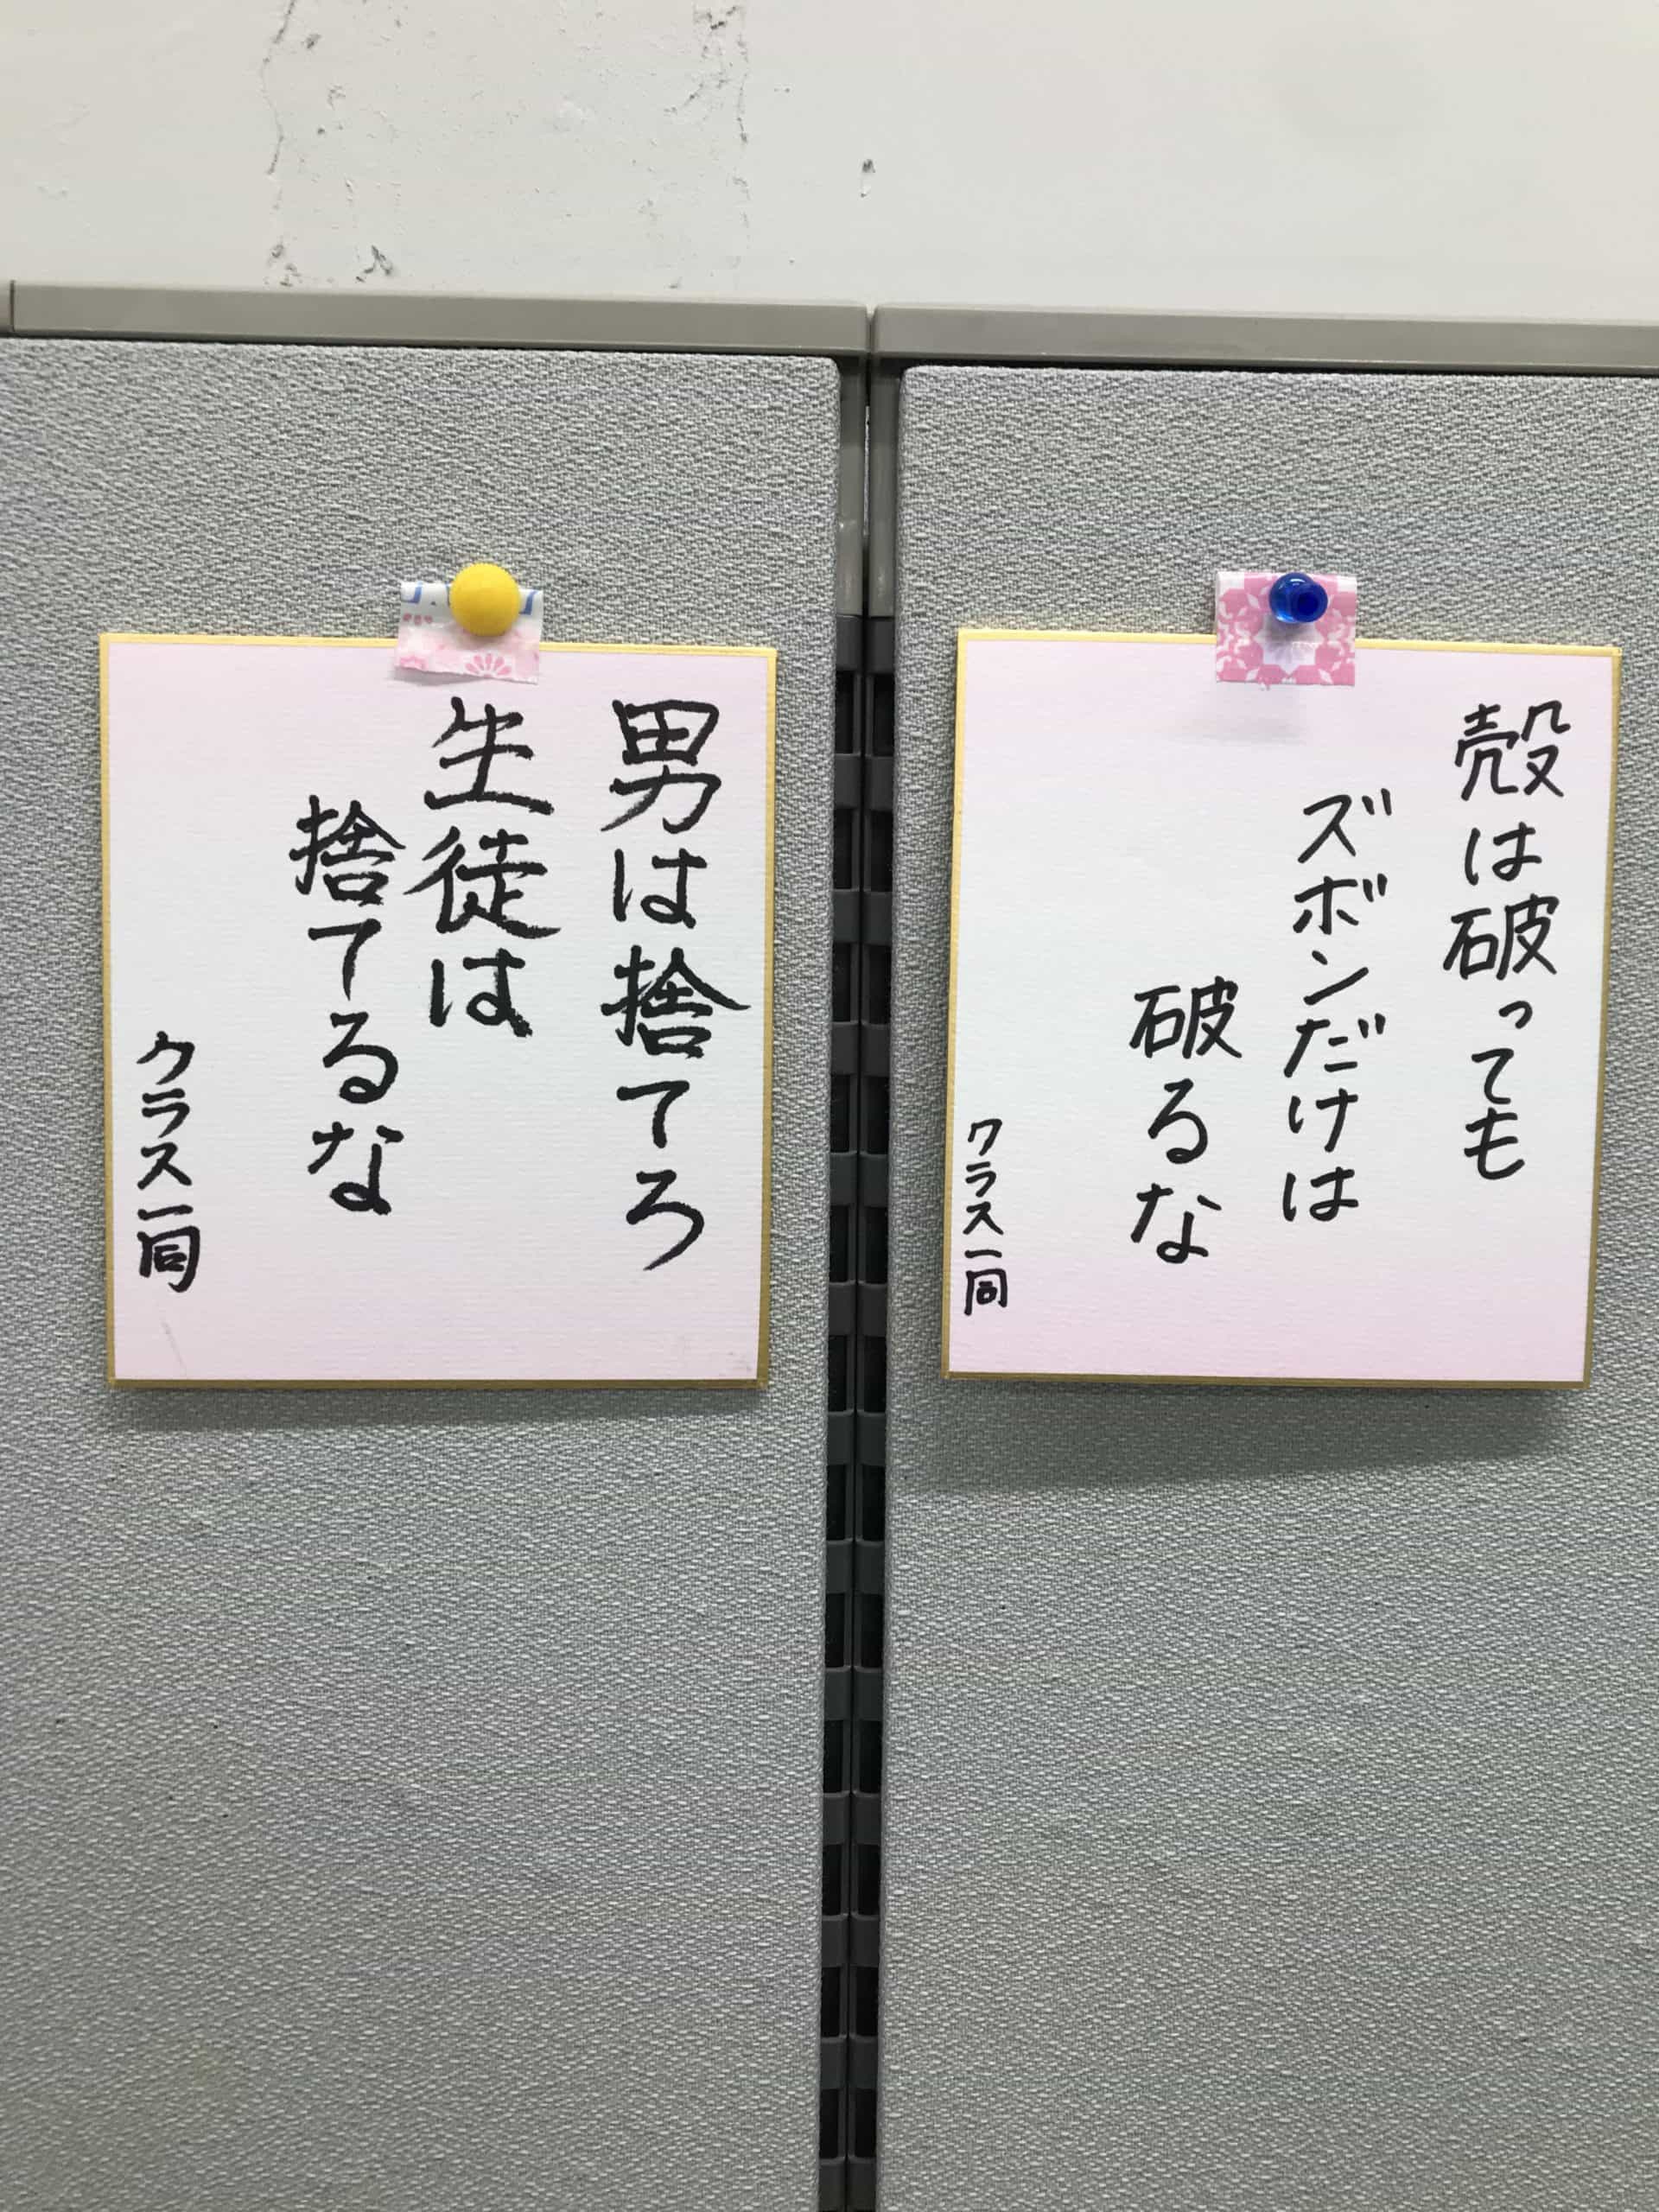 殻は破っても
ズボンだけは
破るな
クラス一同
男は捨てろ
生徒は
捨てるな
クラス一同